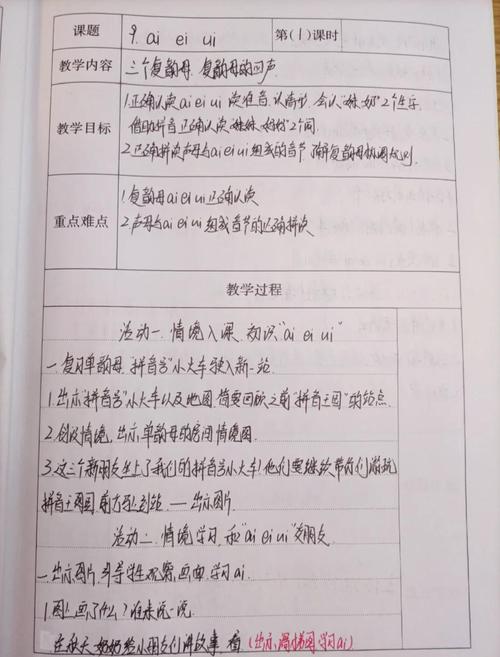 课题 9. ai ei ui 第(1)课时
教学内容 三个复韵母、复韵母的四声
教学目标
1.正确认读ai ei ui 读准音,认清形,会认“妹、奶”2个生字
借助拼音正确认读“妹妹、奶奶”2个词
2.正确拼读声母与ai ei ui组成的音节,了解复韵母标调规则.
重点难点
1.复韵母ai ei ui正确认读
2.声母与ai ei ui组成音节的正确拼读
教学过程
活动一、情境入课、初识“ai ei ui”
一.复习单韵母,“拼音号”小火车驶入新一站
1.出示“拼音号”小火车以及地图,简要回顾之前“拼音王国”的站点
2.创设情境,出示单韵母的房间情境图.
3.这三个新朋友坐上了我们的拼音号小火车!他们要继续带你们游玩
拼音王国,前方到站 —— 出示图片
活动二、情境学习,和“ai ei ui”交朋友
一.出示图片,引导学生观察画面,学习ai.
1.图上画了什么?谁来说一说.
在秋天奶奶给小朋友们讲故事 看(出示 图学习ai)